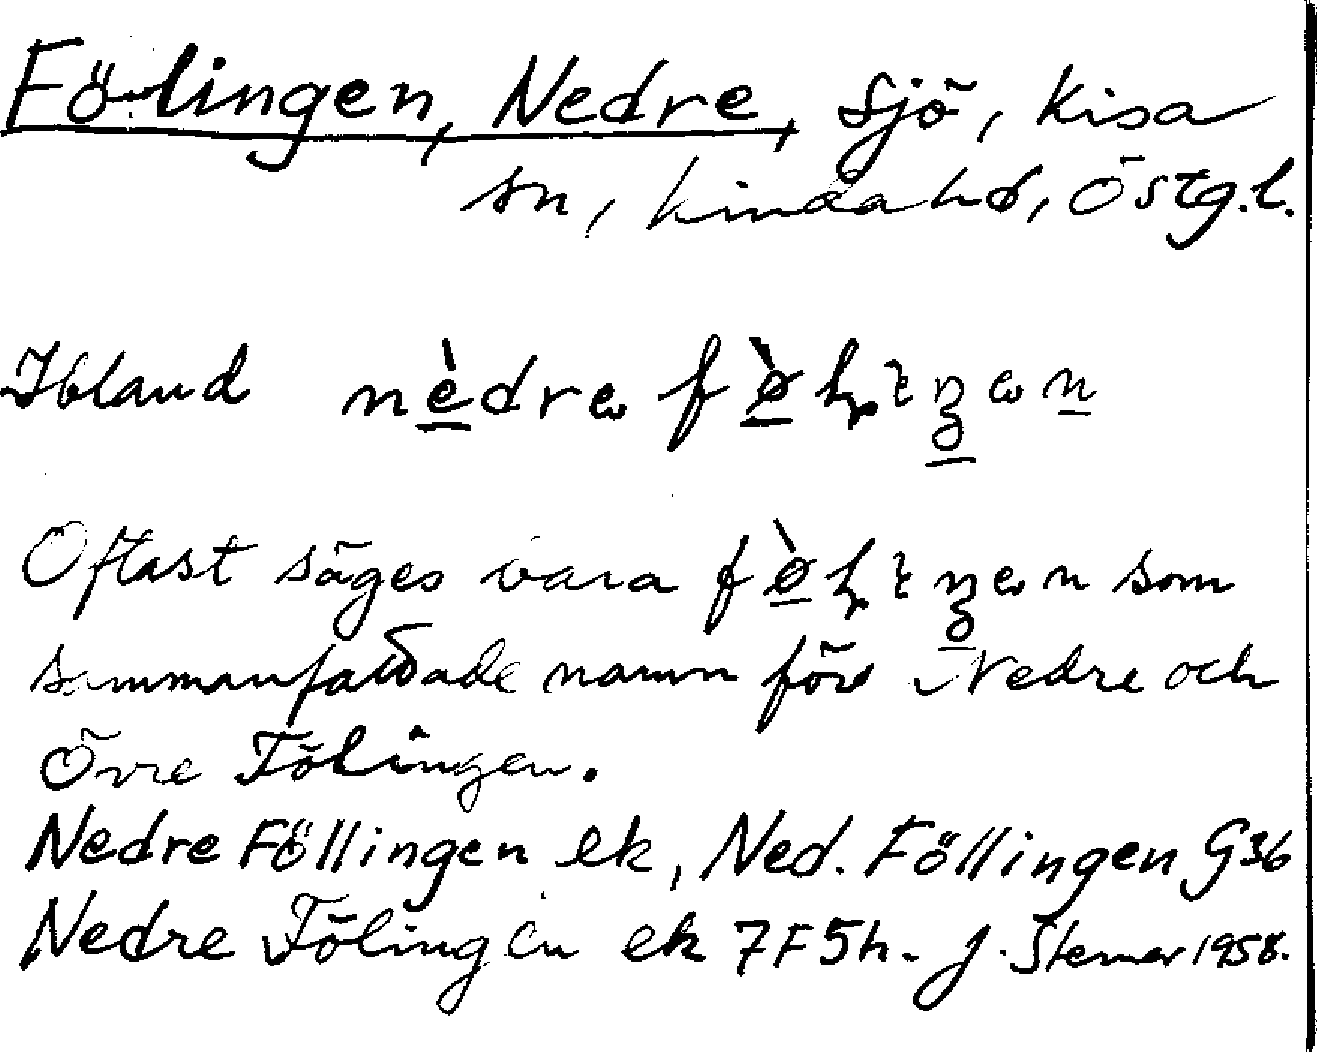 Fölingen, Nedre, sjö, Kisa
sn, Kinda hd, Östg.l.
Ibland nèdre
Oftast säges vara som
sammanfattade namn för Nedre och
Övre Fölingen.
Nedre Föllingen ek, Ned. Föllingen G36
Nedre Fölingen ek 7F5h. J. Stemer 1958.